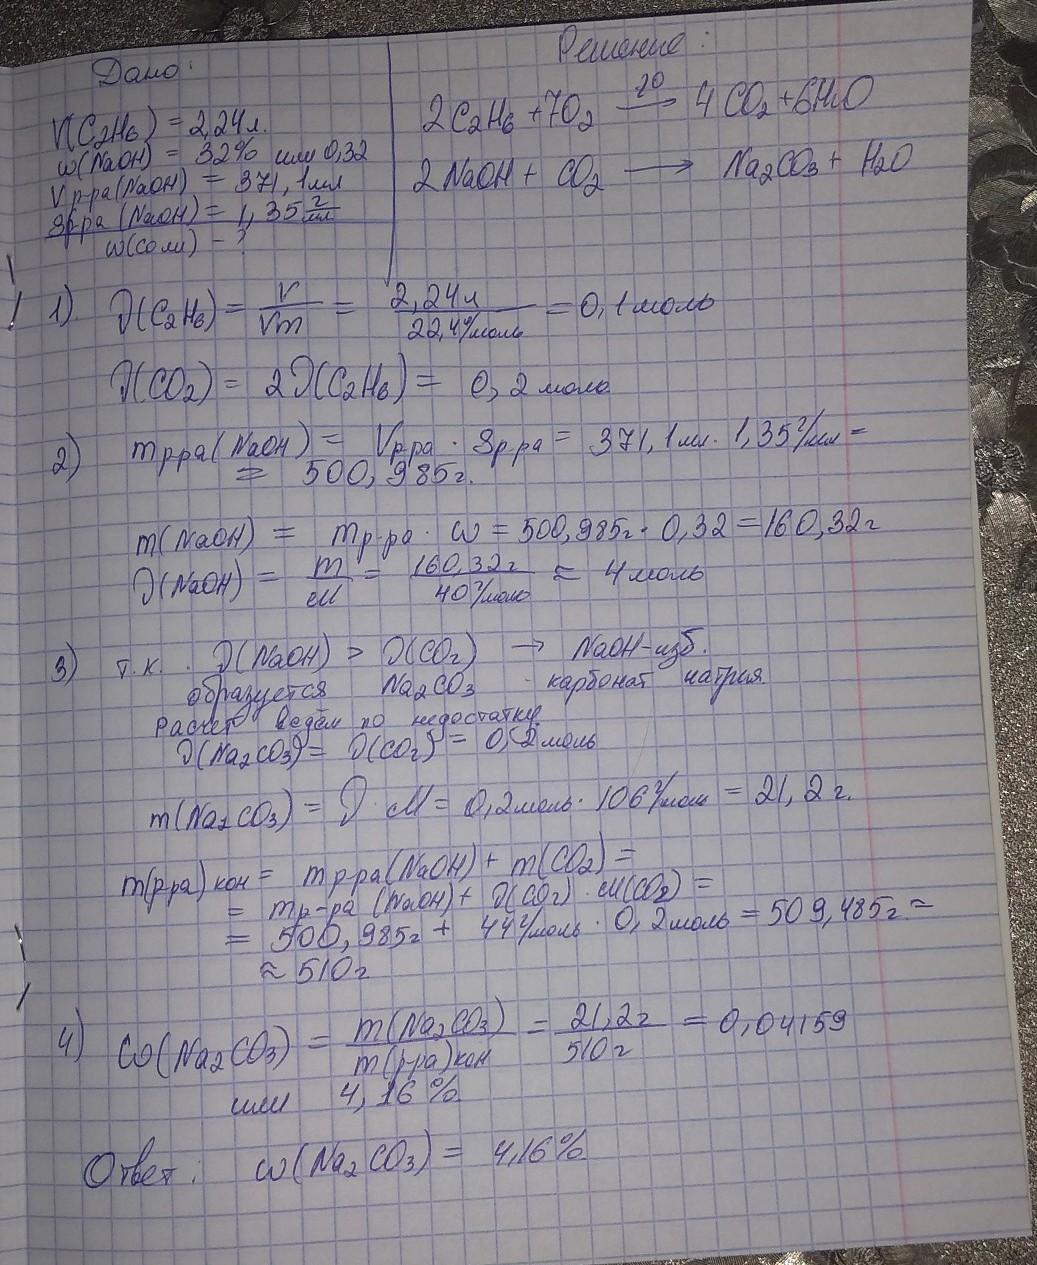 Дано:
V(C₂H₆) = 2,24 л.
ω(NaOH) = 32% или 0,32
Vр-ра(NaOH) = 371,1 мл
ρр-ра(NaOH) = 1,35 г/мл
ω(соли) - ?
Решение:
2C₂H₆ + 7O₂ → 4CO₂ + 6H₂O
2NaOH + CO₂ → Na₂CO₃ + H₂O
1) ν(C₂H₆) = V/Vm = 2,24л/22,4л/моль = 0,1 моль
ν(CO₂) = 2ν(C₂H₆) = 0,2 моль
2) mр-ра(NaOH) = Vр-ра · ρр-ра = 371,1 мл · 1,35 г/мл =
= 500,985 г.
m(NaOH) = mр-ра · ω = 500,985 г · 0,32 = 160,32 г
ν(NaOH) = m/M = 160,32 г/40 г/моль ≈ 4 моль
3) т.к. ν(NaOH) > ν(CO₂) → NaOH - изб.
образуется Na₂CO₃ - карбонат натрия.
расчёт ведём по недостатку
ν(Na₂CO₃) = ν(CO₂) = 0,2 моль
m(Na₂CO₃) = ν · M = 0,2 моль · 106 г/моль = 21,2 г.
m(р-ра) кон = mр-ра(NaOH) + m(CO₂) =
= mр-ра (NaOH) + ν(CO₂) · M(CO₂) =
= 500,985 г + 44 г/моль · 0,2 моль = 509,485 г ≈
≈ 510 г
4) ω(Na₂CO₃) = m(Na₂CO₃)/m(р-ра) кон = 21,2 г/510 г = 0,04159
или 4,16%
Ответ: ω(Na₂CO₃) = 4,16%